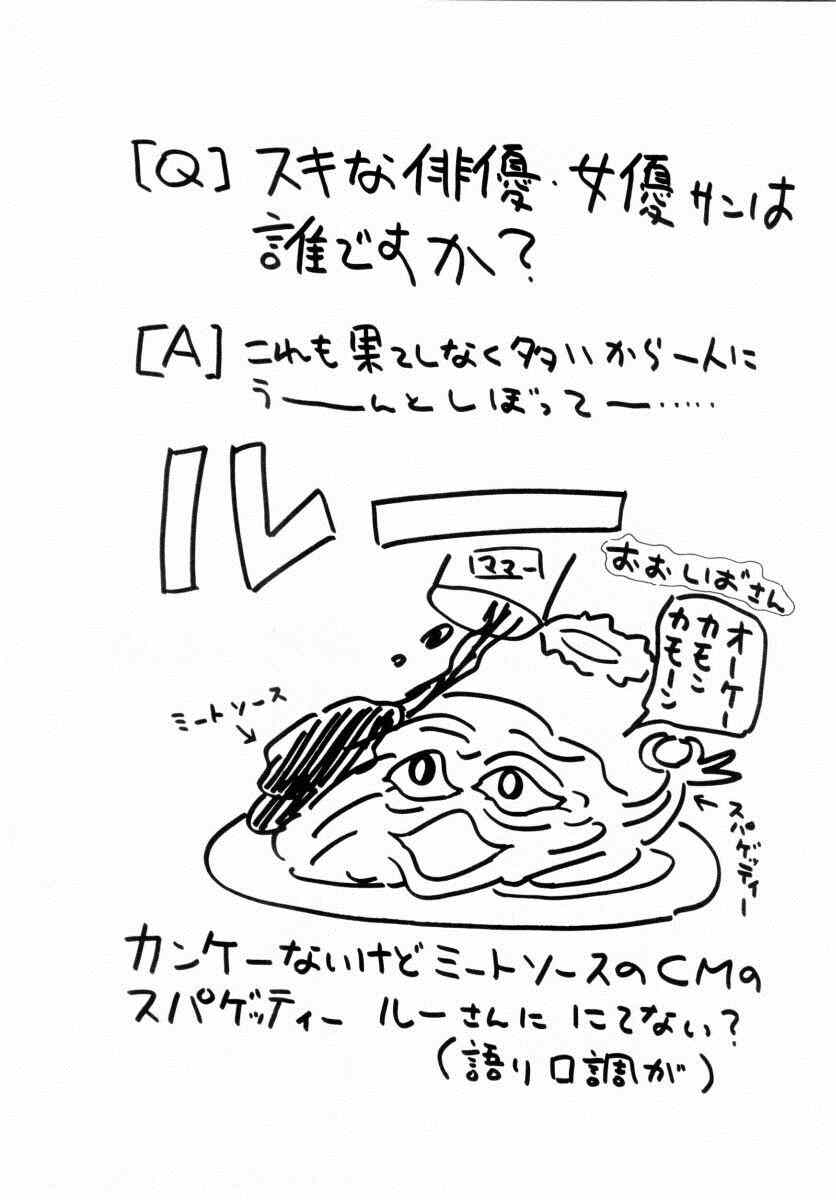 [Q] スキな俳優・女優サンは
誰ですか?
[A] これも果てしなく多いから一人に
うーーんとしぼってー……
ルー
ママー
おおしばさん
オーケー
カモン
カモーン
ミートソース
スパゲッティー
カンケーないけどミートソースのCMの
スパゲッティー ルーさんに にてない?
(語り口調が)